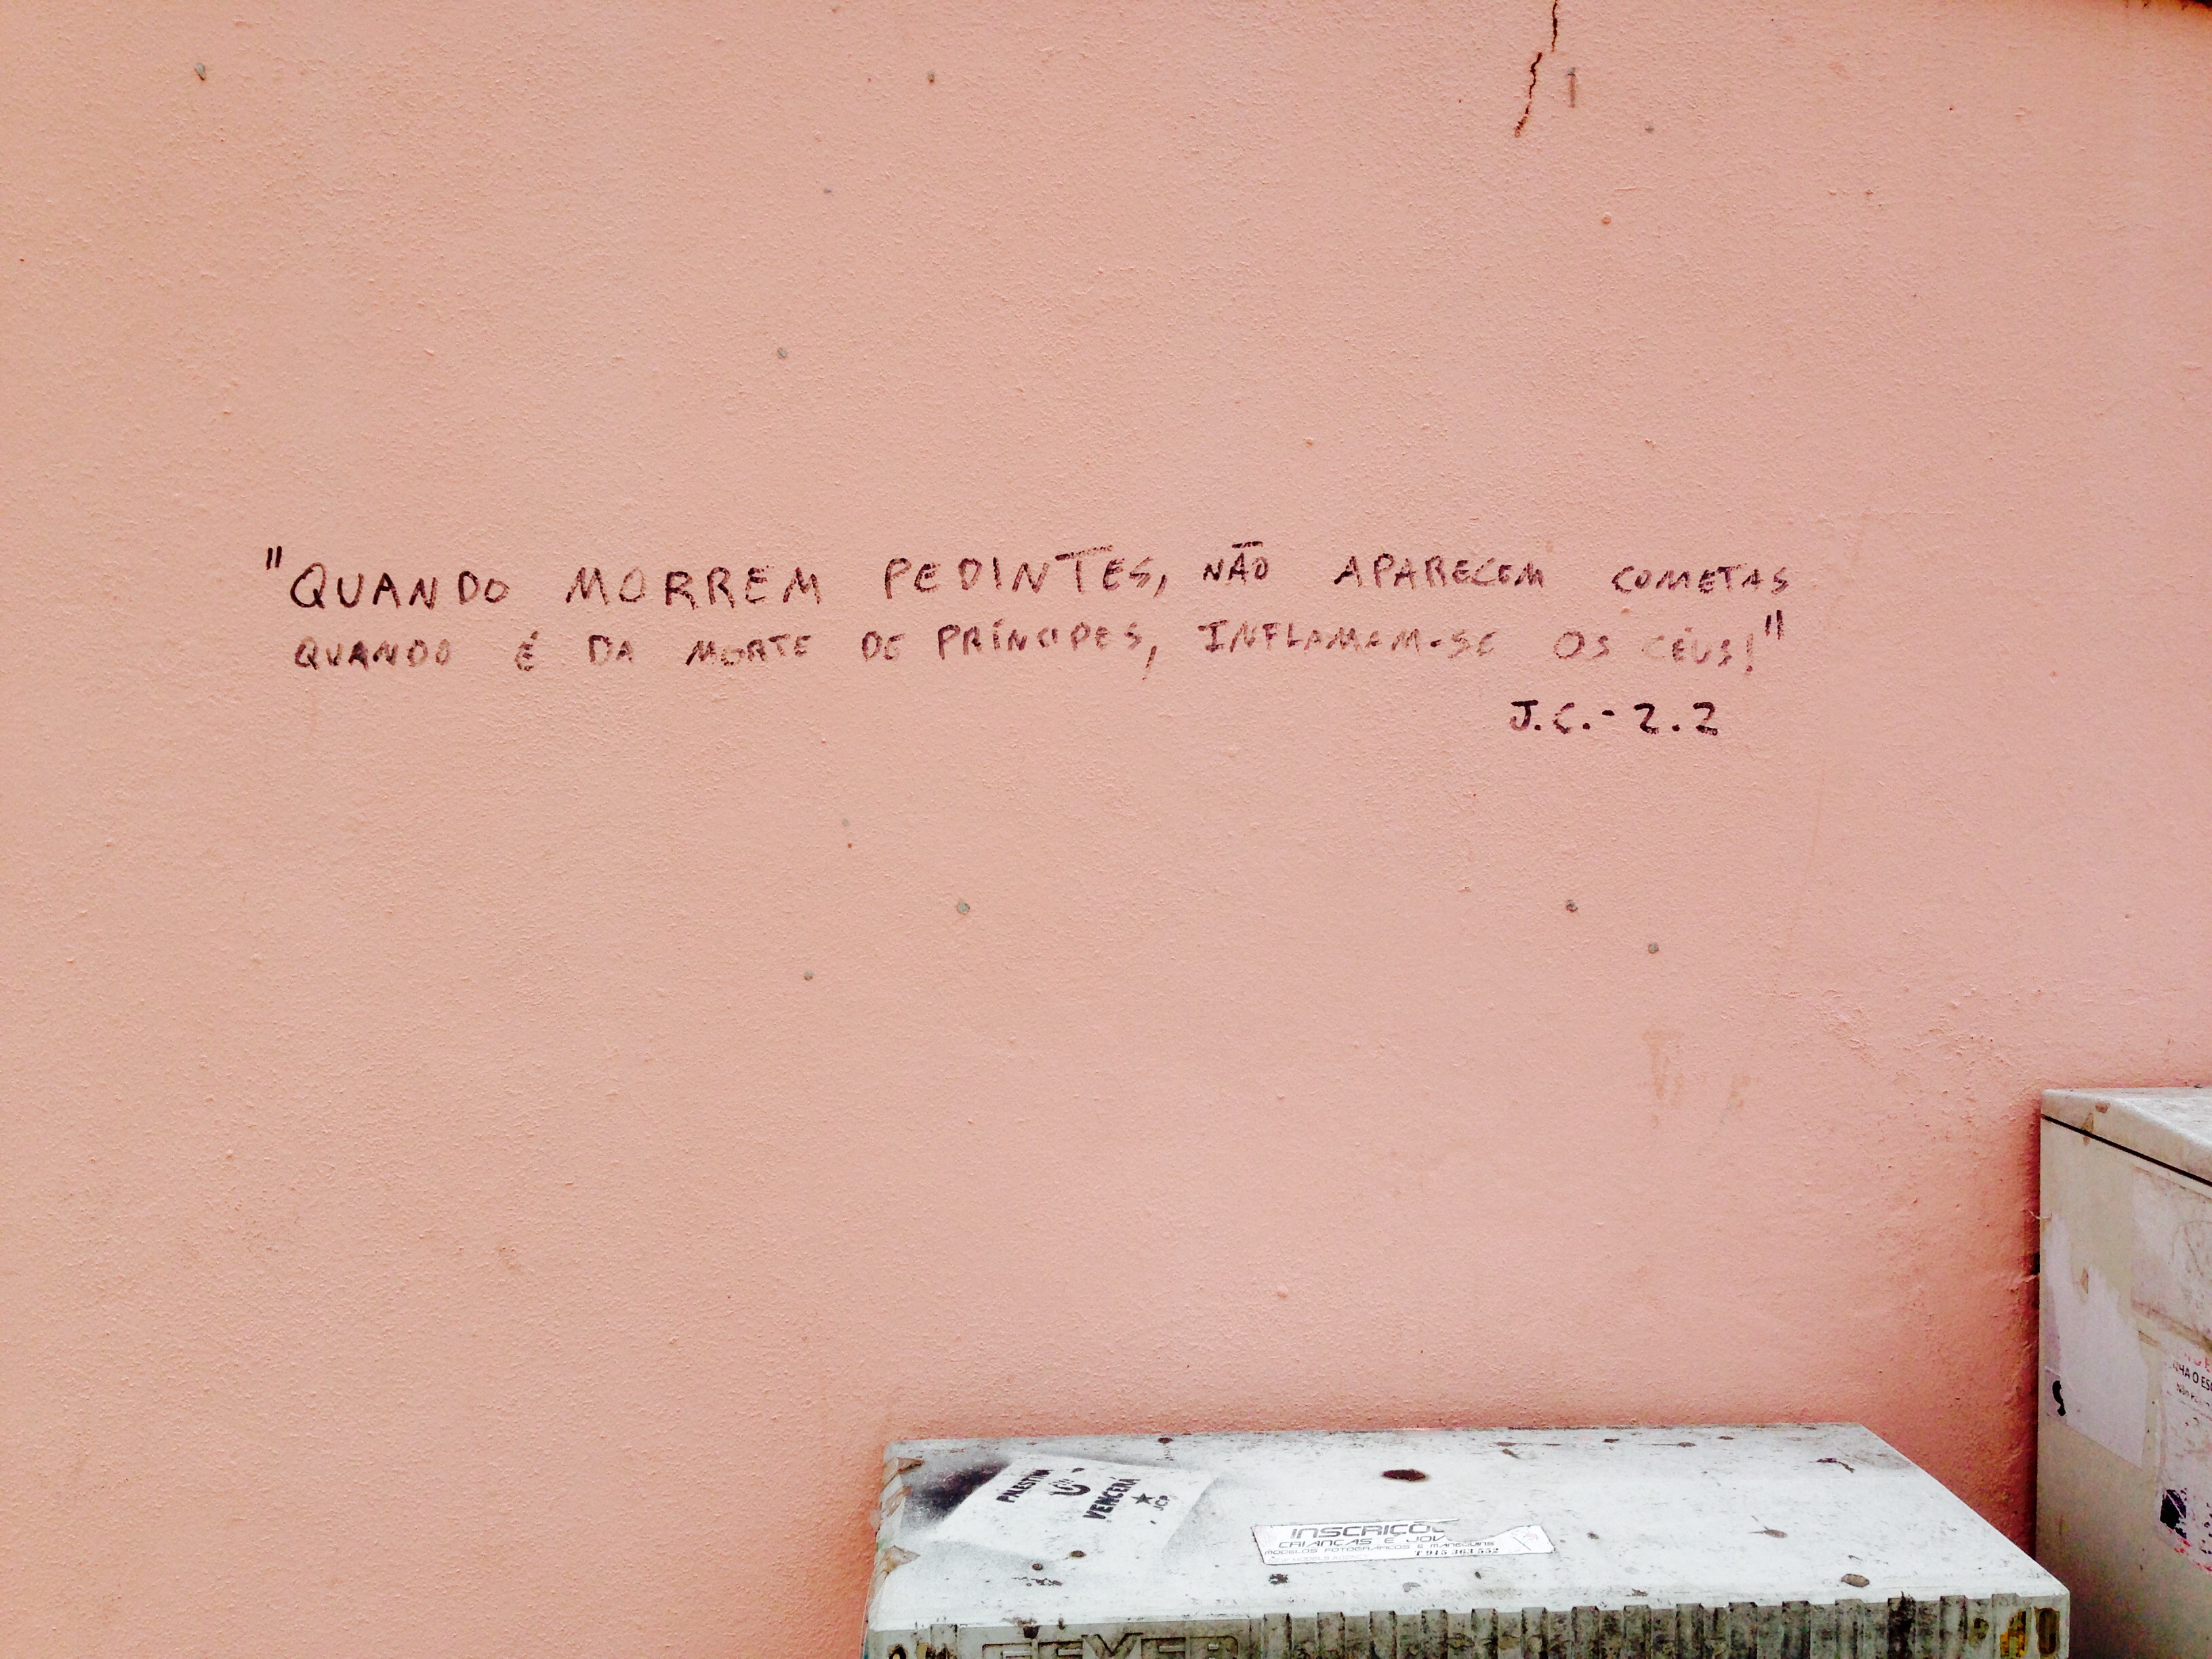 "QUANDO MORREM PEDINTES, NÃO APARECEM COMETAS
QUANDO É DA MORTE DE PRÍNCIPES, INFLAMAM-SE OS CÉUS!"
J.C.-2.2
PALESTINA
VENCERÁ
JCP
INSCRIÇÕ
CRIANÇAS E JOV
MODELOS FOTOGRAFICOS E MANEQUINS
T 915 363 552
NHA O ES